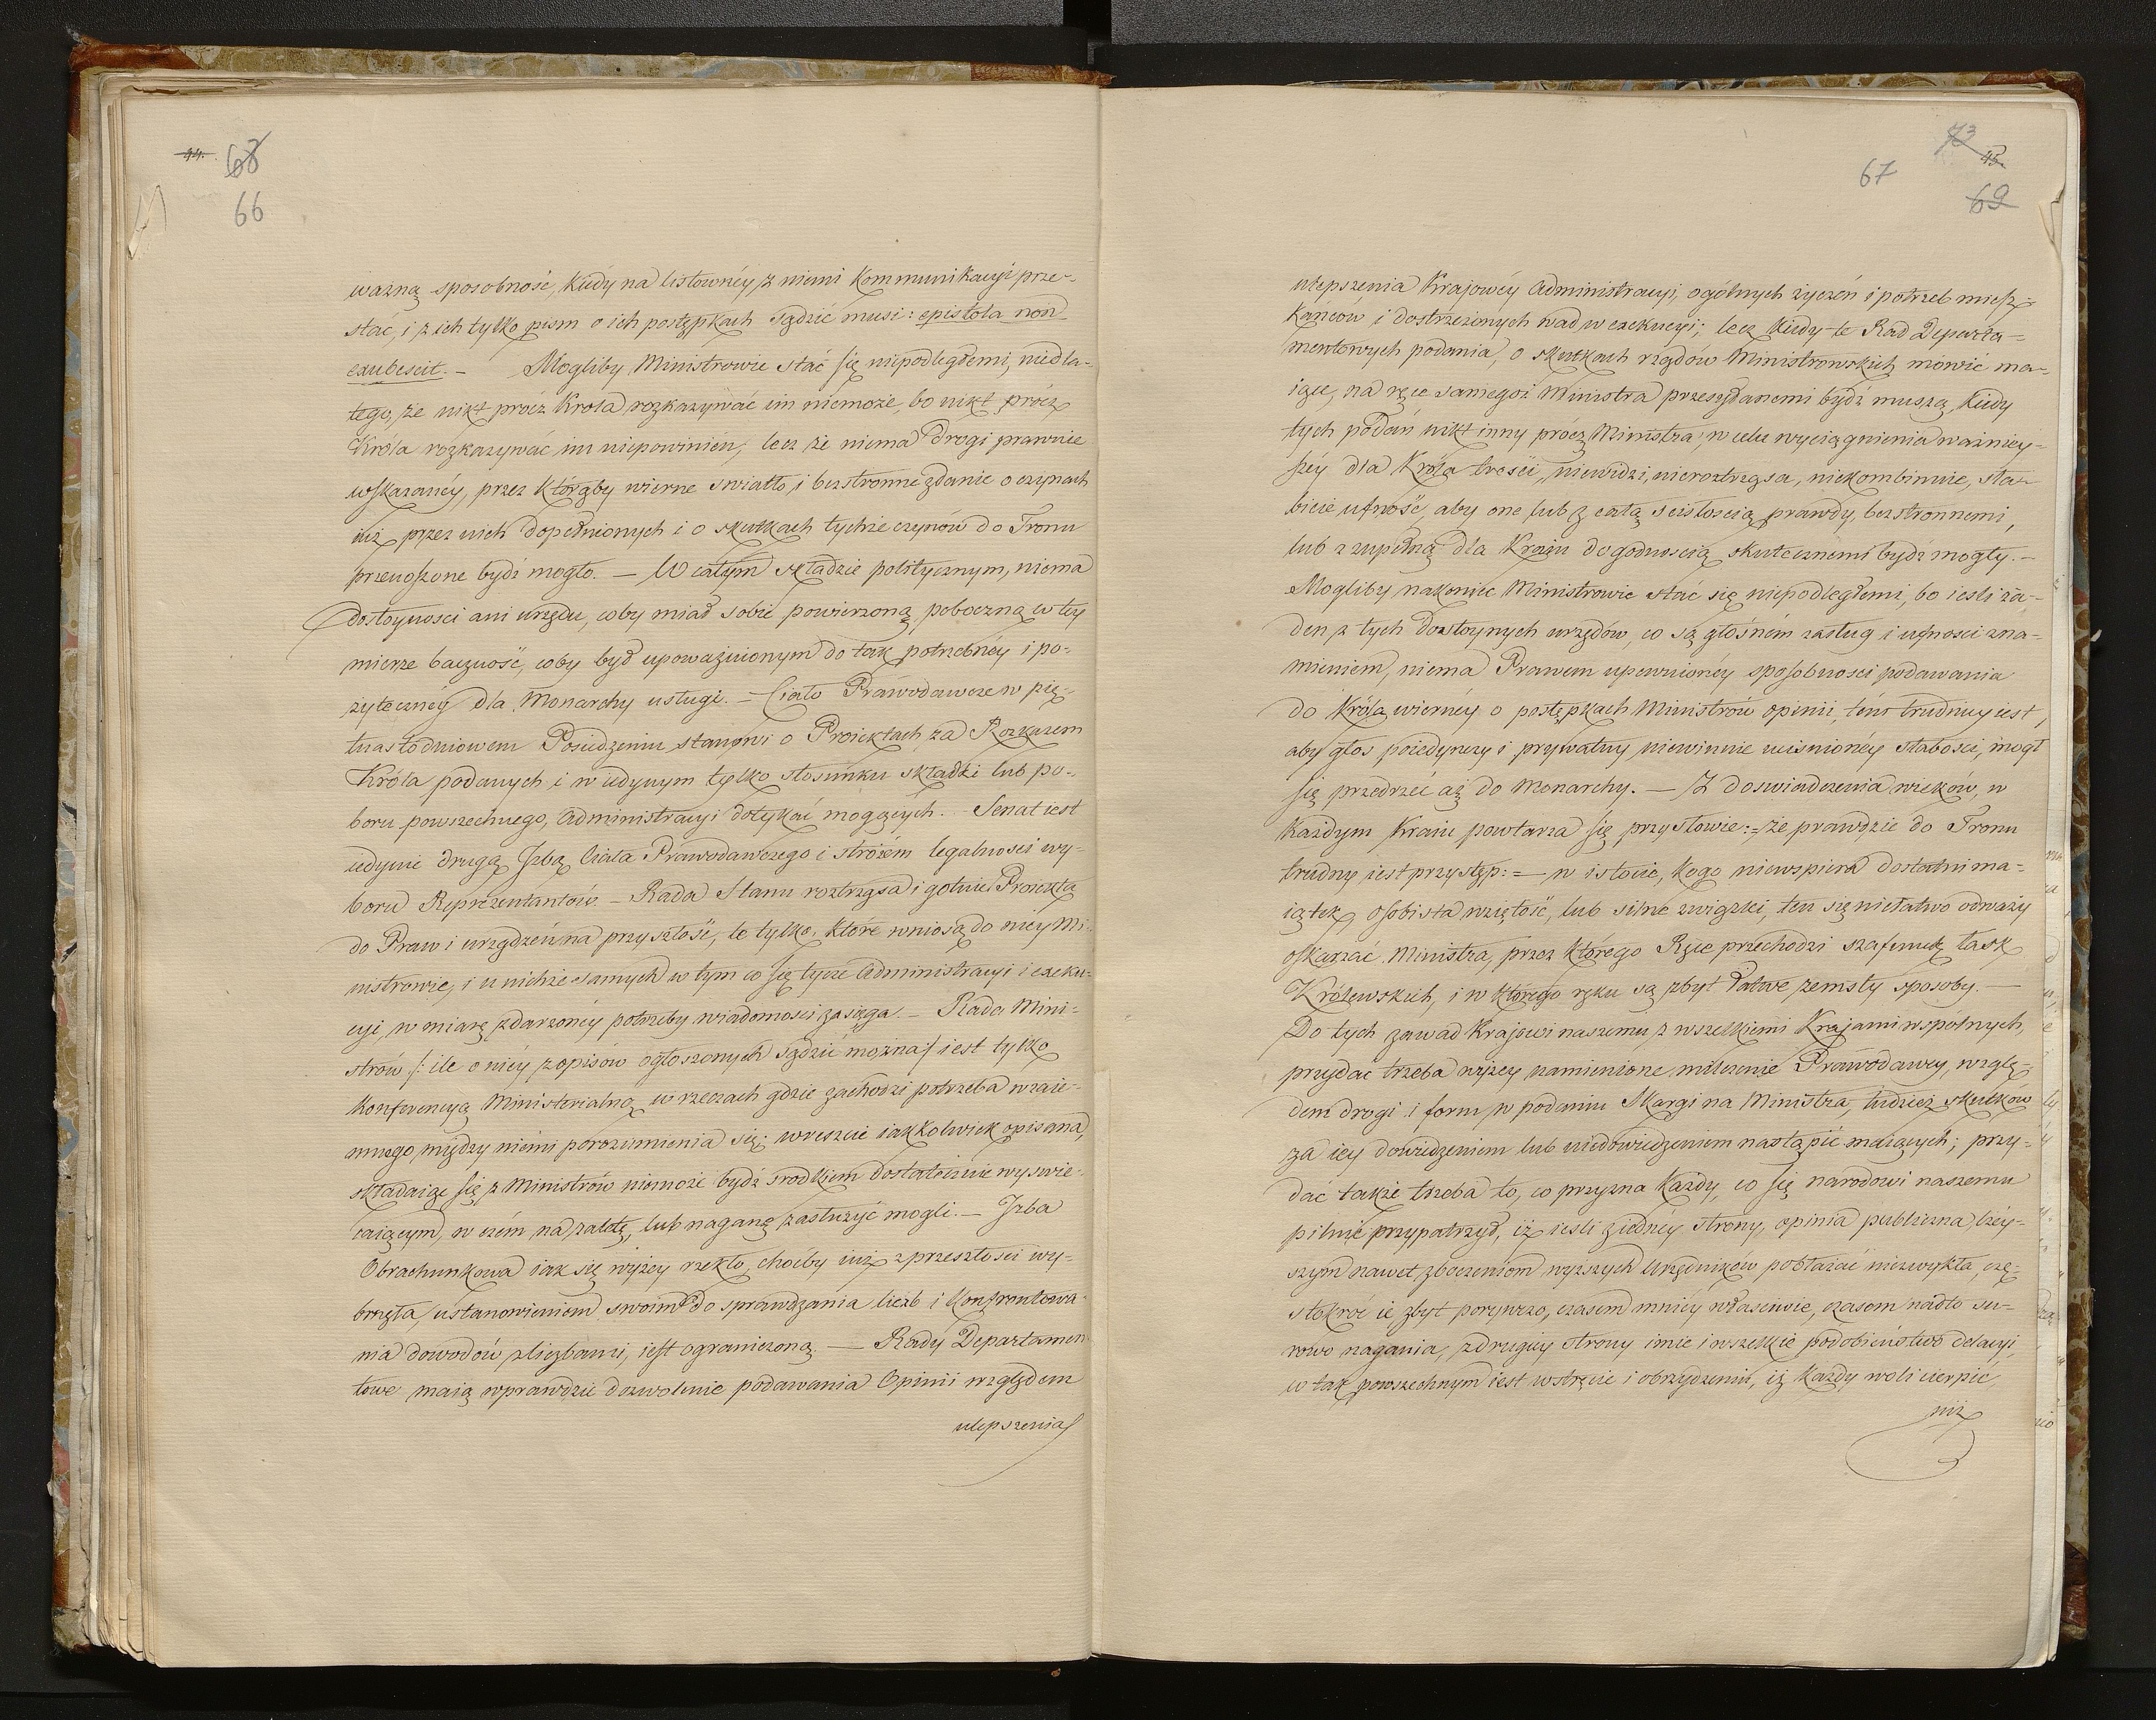 44.
68
66
ważną sposobność, kiedy na listownéy z niemi kommunikacyi prze-
stać, i z ich tylko pism o ich postępkach sądzić musi: epistola non
erubescit. – Mogliby Ministrowie stać się niepodległemi, niedla-
tego, że nikt prócz Krola rozkazywać im niemoże, bo nikt prócz
Króla rozkazywać im niepowinien, lecz że niema drogi prawnie
wskazanéy, przez którąby wierne swiatło, i bezstronne zdanie o czynach
już przez nich dopełnionych i o skutkach tychże czynów do Tronu
przenoszone bydź mogło. – W całym składzie politycznym, niema
dostoyności ani urzędu, coby miał sobie powierzoną poboczną w tey
mierze baczność, coby był upoważnionym do tak potrzebnéy i po-
żytecznéy dla Monarchy usługi. – Ciało Prawodawcze w pię-
tnastodniowem Posiedzeniu stanowi o Proiektach za Rozkazem
Króla podanych i w iedynym tylko stosunku składki lub po-
boru powszechnego, Administracyi dotykać mogących. Senat iest
iedynie drugą Izbą Ciała Prawodawczego i stróżem legalności wy-
boru Reprezentantów. – Rada Stanu roztrząsa i gotuie Proiekta
do Praw i urządzeń na przyszłość, te tylko, które wniosą do niey Mi-
nistrowie, i u nichże samych w tym co się tycze Administracyi i exeku-
cyi, w miarę zdarzonéy potrzeby wiadomości zasięga. – Rada Mini-
strów /: ile o niéy z opisów ogłoszonych sądzić można :/ iest tylko
Konferencyą Ministerialną w rzeczach gdzie zachodzi potrzeba wzaie-
mnego między niemi porozumienia się; wreszcie iakkolwiek opisana,
składaiąc się z Ministrów niemoże bydź srodkiem dostatecznie wyswie-
caiącym, w czém na zaletę, lub naganę zasłużyć mogli. – Izba
Obrachunkowa iak się wyżey rzekło, choćby iuż z przeszłości wy-
brnęła, ustanowieniem swoim do sprawdzania liczb i Konfrontowa-
nia dowodów z liczbami, iest ograniczoną. – Rady Departamen-
towe maią wprawdzie dozwolenie podawania Opinii względem
ulepszenia
73
45.
67
69
ulepszenia Kraiowéy Administracyi, ogólnych życzeń i potrzeb miesz-
kańców i dostrzeżonych wad w exekucyi; lecz kiedy te Rad Departa-
mentowych podania, o skutkach rządów Ministrowskich mówić ma-
iące, na ręce samegoż Ministra przesyłanemi bydź muszą, kiedy
tych podań nikt inny prócz Ministra, w celu wyciągnienia ważniey-
széy dla Króla treści, niewidzi, nieroztrząsa, niekombinuie, sła-
bieie ufność, aby one lub z całą scisłoscią prawdy, bezstronnemi,
lub z zupełną dla Kraiu dogodnoscią skutecznemi bydź mogły. –
Mogliby nakoniec Ministrowie stać się niepodległemi, bo iesli ża-
den z tych dostoynych urzędów, co są głośném zasług i ufności zna-
mieniem, niema Prawem upewnionéy sposobności podawania
do Króla wiernéy o postępkach Ministrów opinii, tém trudniey iest,
aby głos poiedynczy i prywatny niewinnie uciśnionéy słabości, mógł
się przedrzéć aż do Monarchy. – Z doswiadczenia wieków, w
każdym kraiu powtarza się przysłowie: = że prawdzie do Tronu
trudny iest przystęp: = – w istocie, kogo niewspiera dostatni ma-
iątek, osobista wziętość, lub silne związki, ten się niełatwo odważy
oskarżać Ministra, przez którego Ręce przechodzi szafunek łask
Królewskich, i w którego ręku są zbyt łatwe zemsty sposoby. –
Do tych zawad Kraiowi naszemu z wszelkiemi Kraiami wspólnych,
przydać trzeba wyżey namienione milczenie Prawodawcy, wzglę-
dem drogi i form w podaniu Skargi na Ministra, tudzież skutków
za iéy dowiedzeniem lub niedowiedzeniem nastąpić maiących; przy-
dać także trzeba to, co przyzna każdy, co się narodowi naszemu
pilnie przypatrzył, iż iesli z iednéy strony, opinia publiczna, lżéy-
szym nawet zboczeniom wyższych Urzędników pobłażać niezwykła, czę-
stokroć ie zbyt porywczo, czasem mniéy własciwie, czasem nadto su-
rowo nagania, z drugiey strony imie i wszelkie podobieństwo delacyi,
w tak powszechnym iest wstręcie i obrzydzeniu, iż każdy woli cierpieć
niż